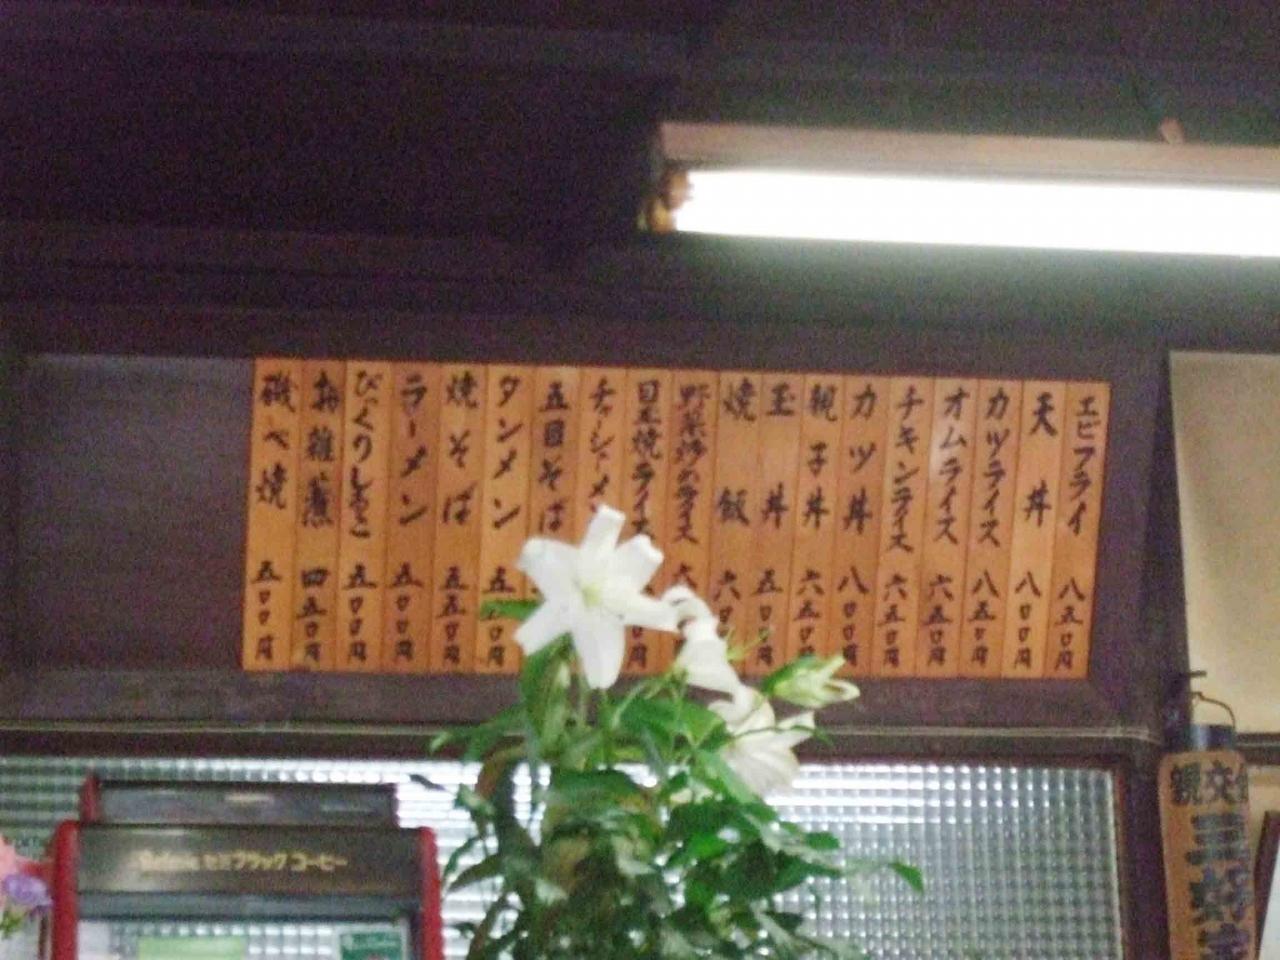 エビフライ 八五〇円
天丼 八〇〇円
カツライス 八五〇円
オムライス 六五〇円
チキンライス 六五〇円
カツ丼 八〇〇円
親子丼 六五〇円
玉丼 五〇〇円
焼飯 六〇〇円
野菜炒めライス 六
目玉焼ライス
チャーシューメン
五目そば
タンメン 五五〇円
焼そば 五五〇円
ラーメン 五〇〇円
びっくりしるこ 五〇〇円
お雑煮 四五〇円
磯べ焼 五〇〇円
ブラックコーヒー
親交会